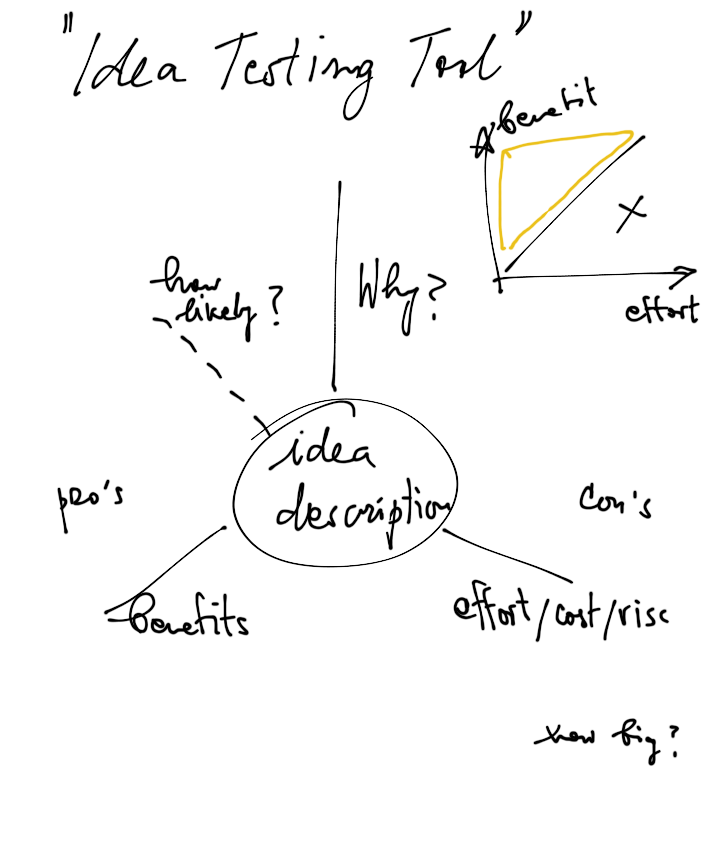 "Idea Testing Tool"
benefit
effort
how
likely?
Why?
idea
description
pro's
Con's
benefits
effort/cost/risc
how big?